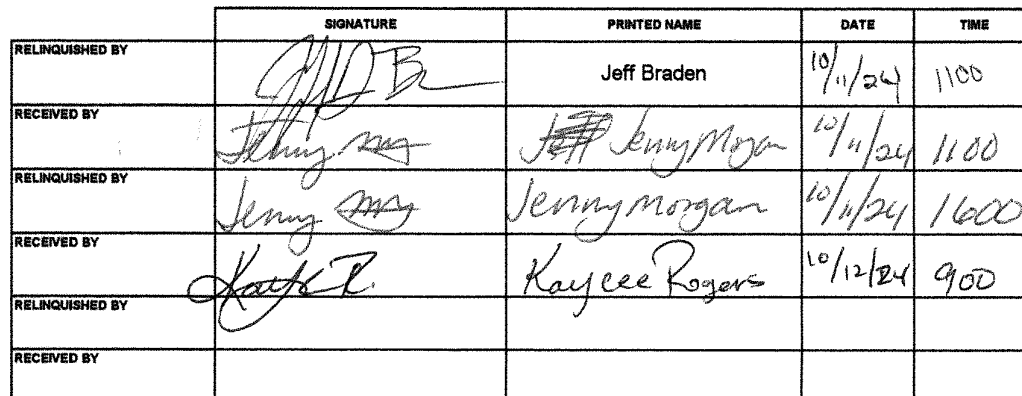 SIGNATURE PRINTED NAME DATE TIME
RELINQUISHED BY Jeff Braden 10/11/24 1100
RECEIVED BY Jenny Jenny Morgan 10/11/24 1100
RELINQUISHED BY Jenny Jenny Morgan 10/11/24 1600
RECEIVED BY Kaycee R. Kaycee Rogers 10/12/24 900
RELINQUISHED BY
RECEIVED BY